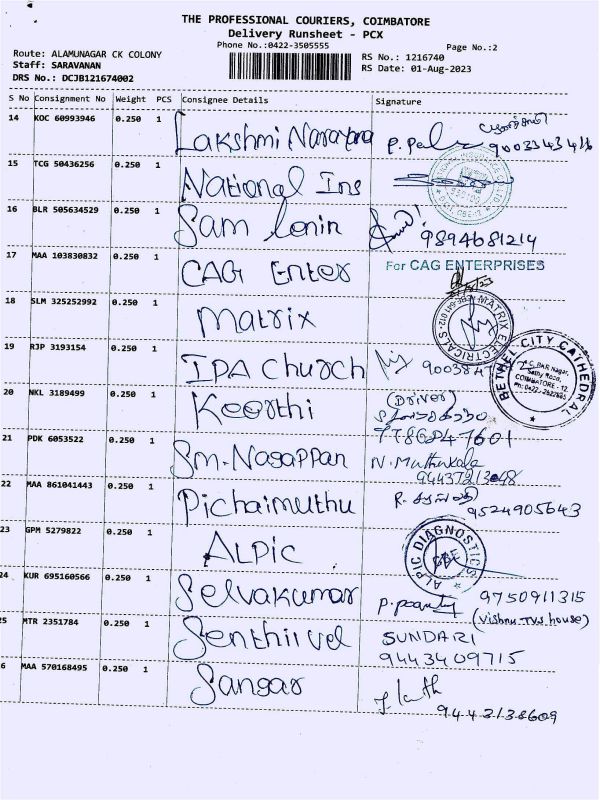 THE PROFESSIONAL COURIERS, COIMBATORE
Delivery Runsheet - PCX
Phone No.:0422-3505555
Page No.:2
Route: ALAMUNAGAR CK COLONY
RS No.: 1216740
Staff: SARAVANAN
RS Date: 01-Aug-2023
DRS No.: DCJB121674002
S No Consignment No Weight PCS Consignee Details Signature
14 KOC 60993946 0.250 1 Lakshmi Narayana
15 TCG 50436256 0.250 1 National Ins
16 BLR 505634529 0.250 1 Sam Lenin
9894681214
17 MAA 103830832 0.250 1 CAG Enter For CAG ENTERPRISES
18 SLM 325252992 0.250 1 Matrix
MATRIX ELECTRICALS
19 RJP 3193154 0.250 1 IPA Church
BETHEL CITY CATHEDRAL
COIMBATORE - 12.
20 NKL 3189499 0.250 1 Keerthi (Driver)
21 PDK 6053522 0.250 1 Sm. Nagappan N. Muthukala
22 MAA 861041443 0.250 1 Pichaimuthu
9524905643
23 GPM 5279822 0.250 1 ALPIC
ALPIC DIAGNOSTICS
CBE
24 KUR 695160566 0.250 1 Selvakumar 9750911315
(Vishnu TVS house)
25 MTR 2351784 0.250 1 Senthil vel SUNDARI
9443409715
6 MAA 570168495 0.250 1 Sangar
9443138609